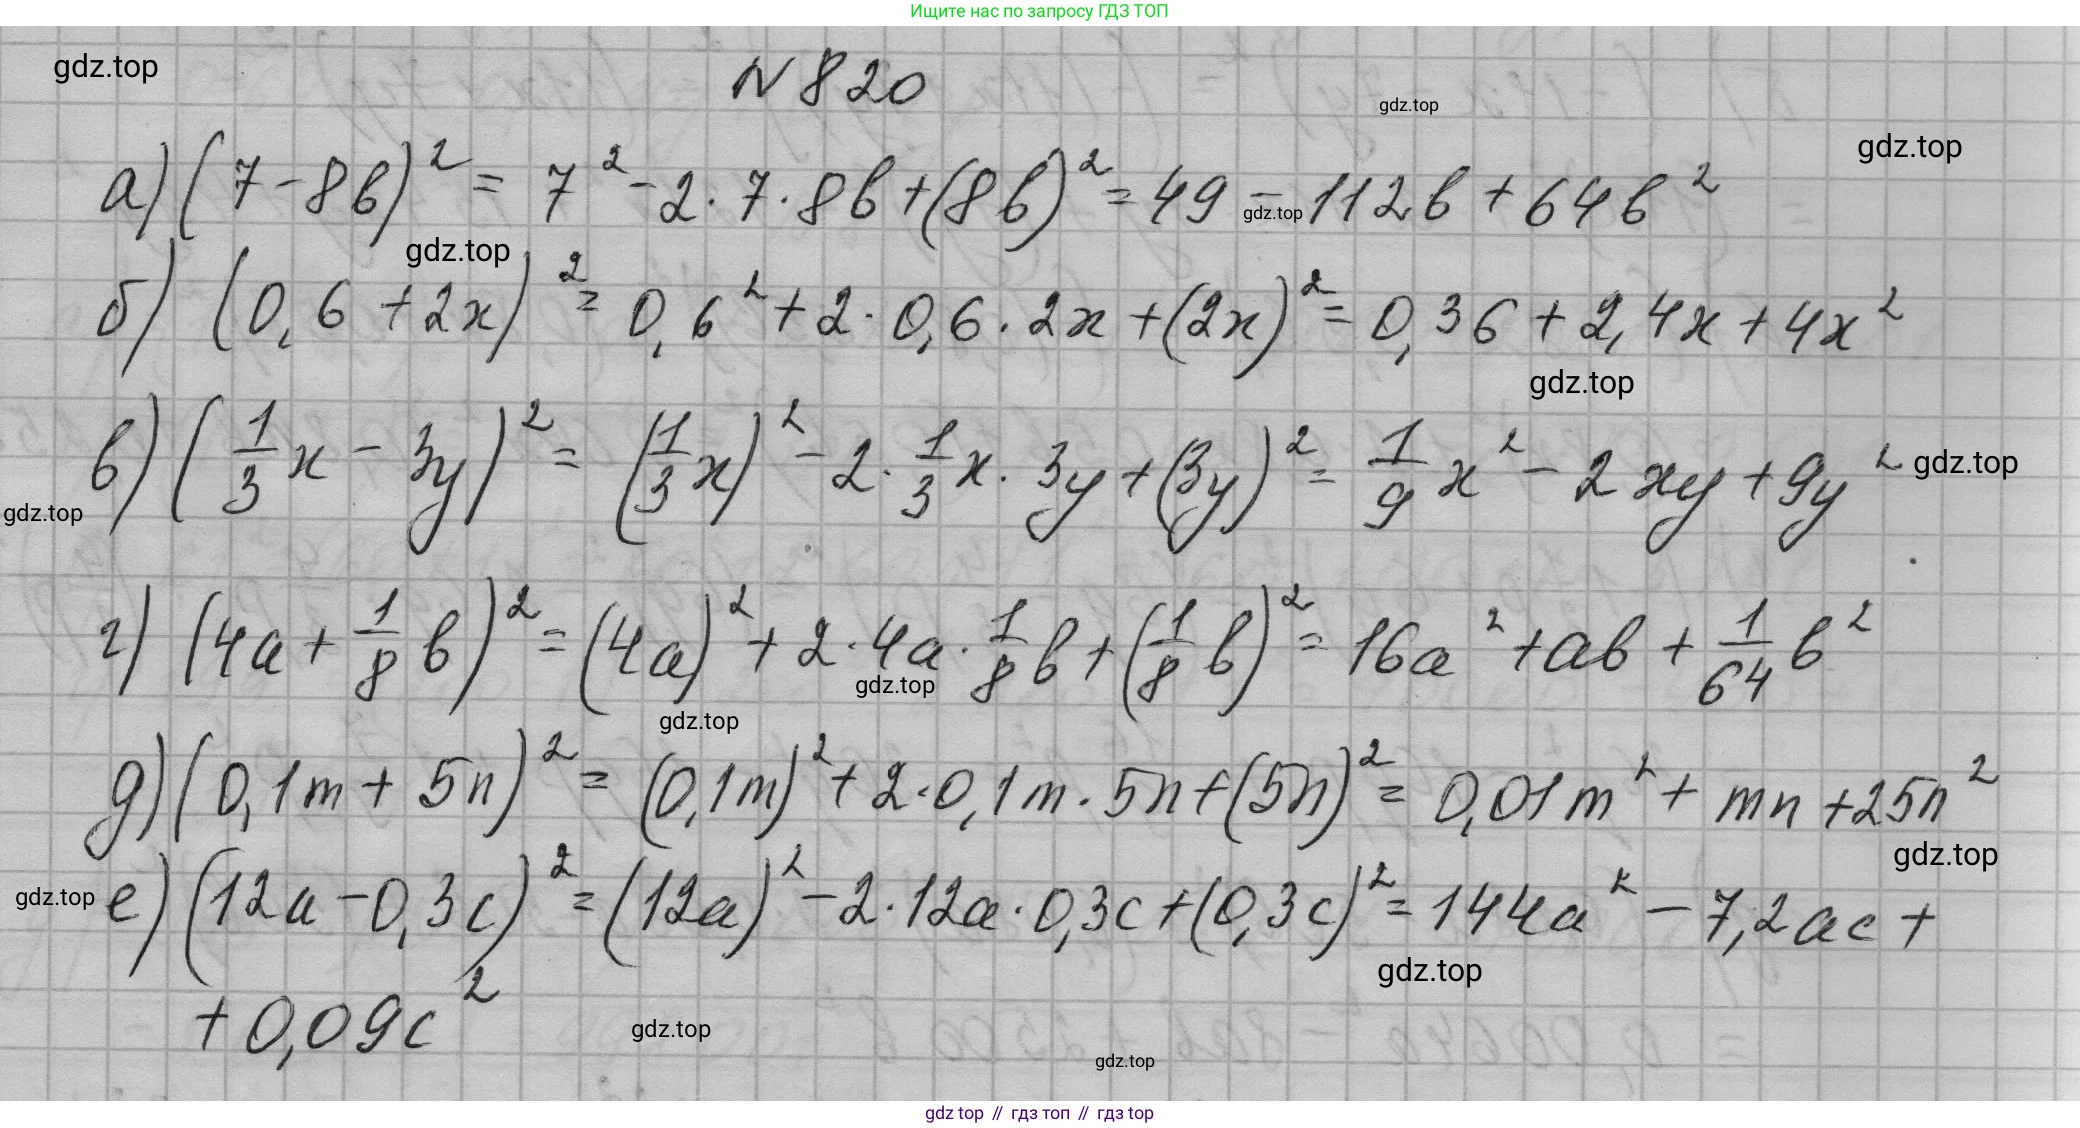 Ищите нас по запросу ГДЗ ТОП
gdz.top
N 820
gdz.top
gdz.top
а) (7 - 8b)² = 7² - 2 · 7 · 8b + (8b)² = 49 - 112b + 64b²
gdz.top
gdz.top
б) (0,6 + 2x)² = 0,6² + 2 · 0,6 · 2x + (2x)² = 0,36 + 2,4x + 4x²
gdz.top
в) (1/3 x - 3y)² = (1/3 x)² - 2 · 1/3 x · 3y + (3y)² = 1/9 x² - 2xy + 9y²
gdz.top
gdz.top
г) (4a + 1/8 b)² = (4a)² + 2 · 4a · 1/8 b + (1/8 b)² = 16a² + ab + 1/64 b²
gdz.top
gdz.top
д) (0,1m + 5n)² = (0,1m)² + 2 · 0,1m · 5n + (5n)² = 0,01m² + mn + 25n²
gdz.top
gdz.top
е) (12a - 0,3c)² = (12a)² - 2 · 12a · 0,3c + (0,3c)² = 144a² - 7,2ac +
gdz.top
+ 0,09c²
gdz.top
gdz.top
gdz top // гдз топ // гдз top